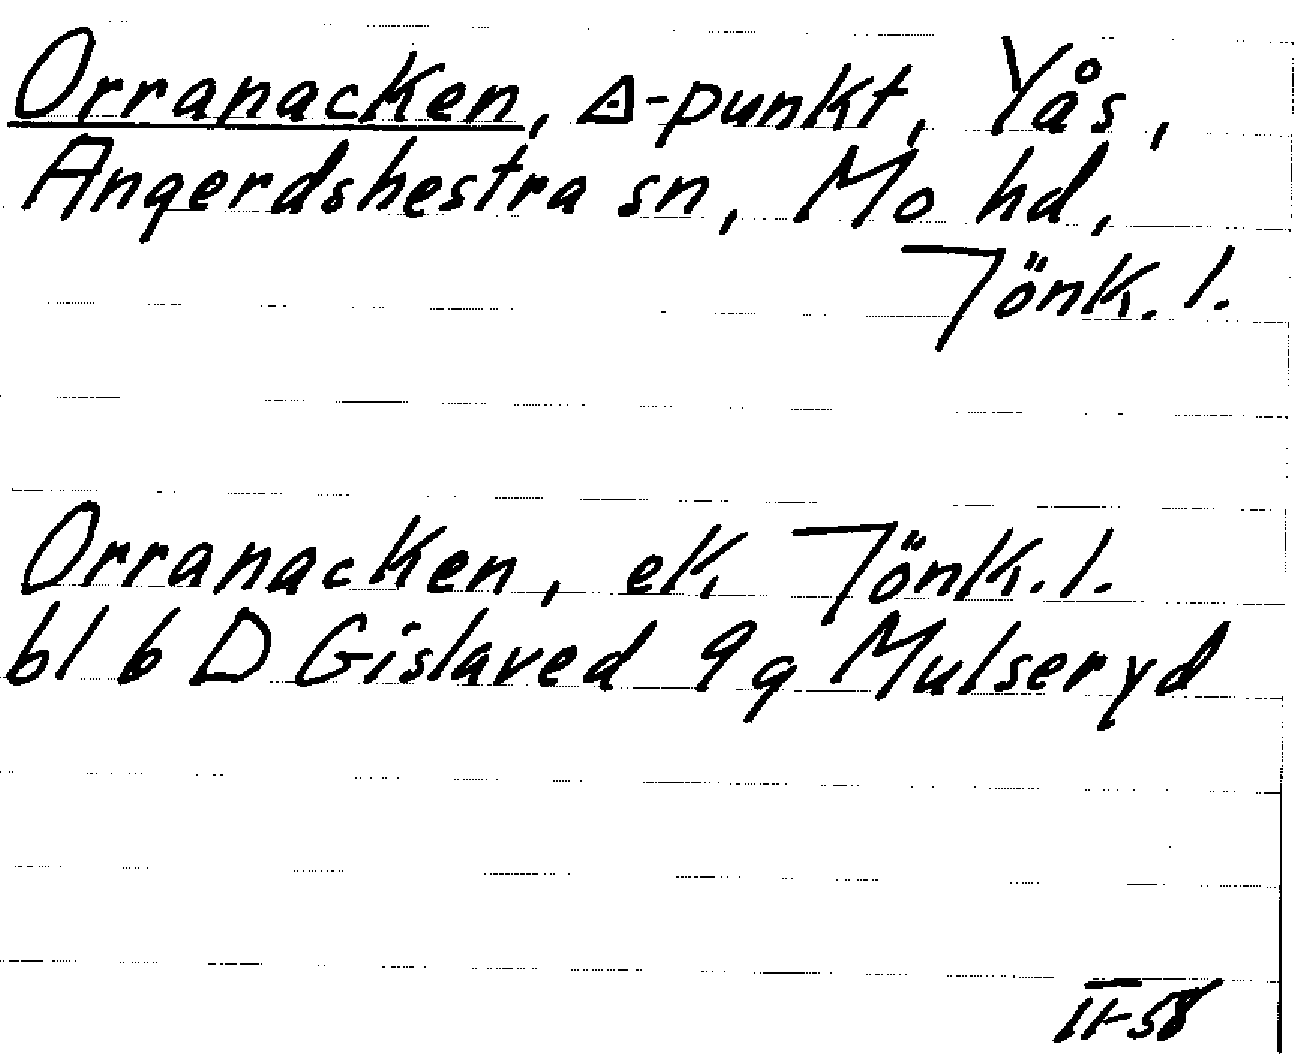 Orranacken, △-punkt, Yås,
Angerdshestra sn, Mo hd,
Jönk. l.
Orranacken, ek, Jönk. l.
bl 6 D Gislaved 9g Mulseryd
II-58